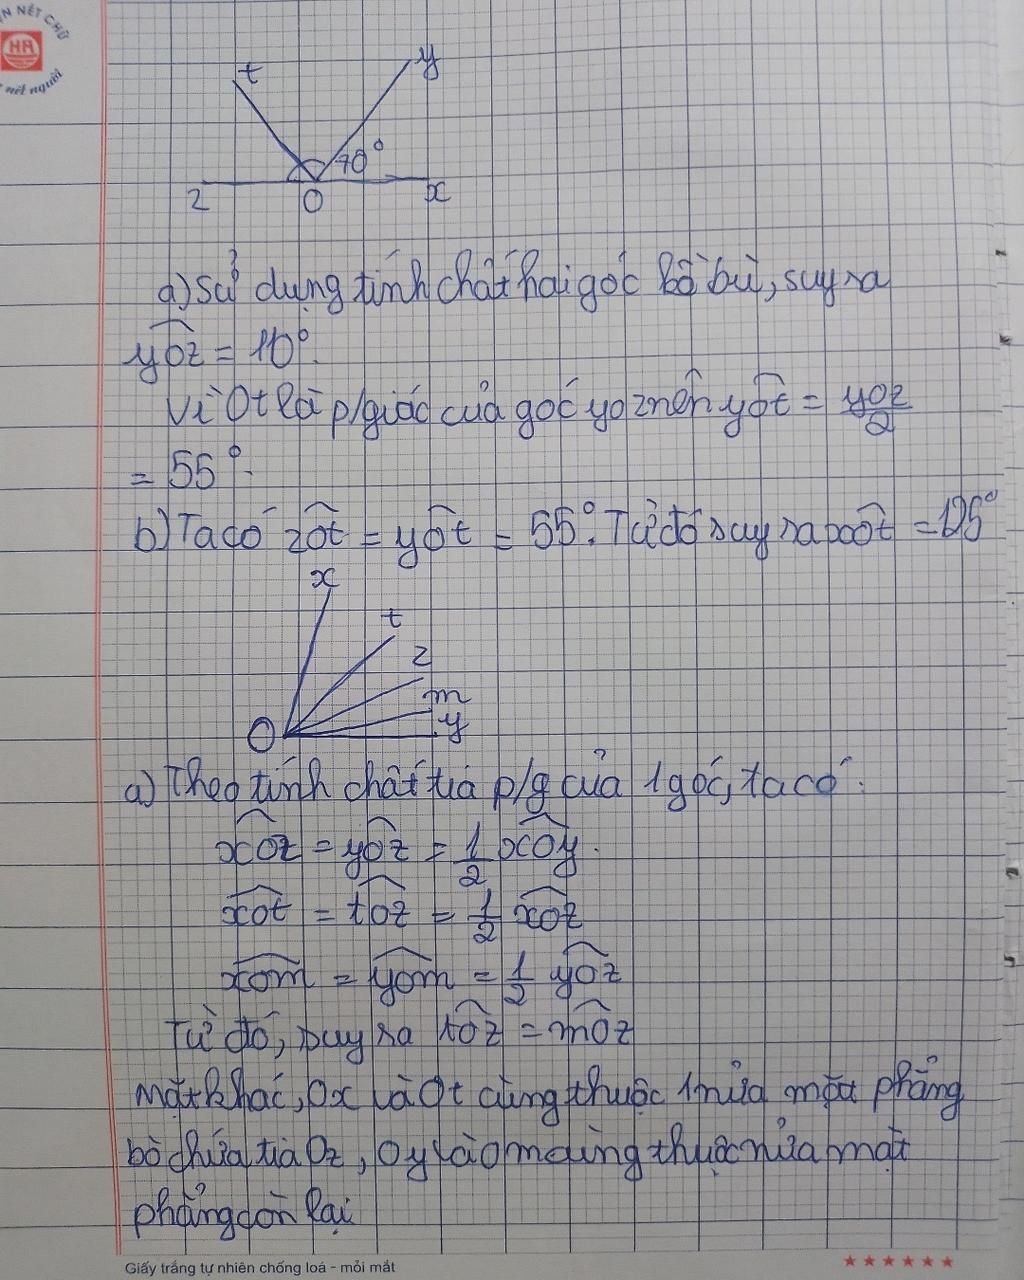 N NÉT CHỮ
HA
nét người
t
y
70°
z
O
x
a) Sử dụng tính chất hai góc kề bù, suy ra
yOz = 110°.
Vì Ot là p/giác của góc yOz nên yOt = yOz/2
= 55°.
b) Ta có zOt = yOt = 55°. Từ đó suy ra xOt = 125°
x
t
z
m
O
y
a) Theo tính chất tia p/g của 1 góc, ta có:
xOz = yOz = 1/2 xOy.
xOt = tOz = 1/2 xOz
xOm = yOm = 1/2 yOz
Từ đó, suy ra tOz = mOz
Mặt khác, Ox và Ot cùng thuộc 1 nửa mặt phẳng
bờ chứa tia Oz, Oy và Om cùng thuộc nửa mặt
phẳng còn lại
Giấy trắng tự nhiên chống loá - mỏi mắt